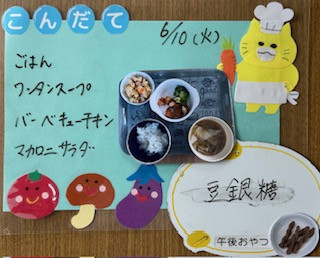 こんだて
6/10(火)
ごはん
ワンタンスープ
バーベキューチキン
マカロニサラダ
豆銀糖
午後おやつ